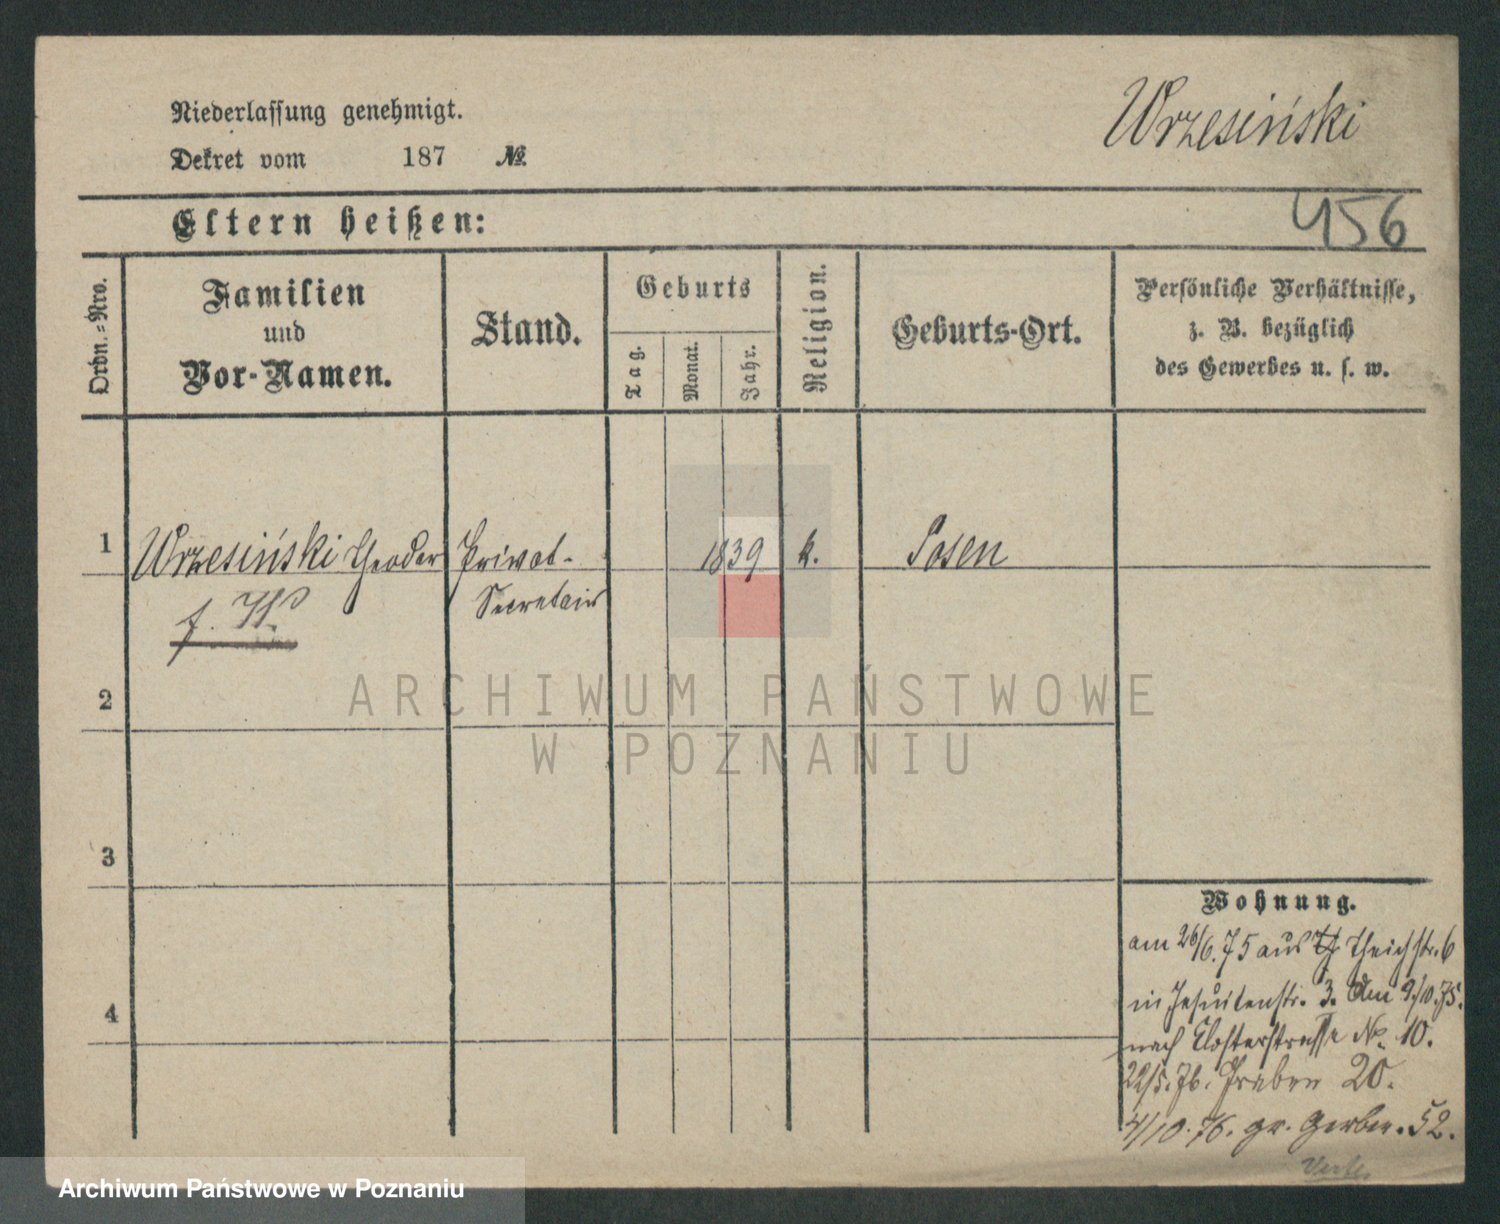 Niederlassung genehmigt.
Dekret vom 187 №
Wrzesiński
Eltern heißen:
456
Ordn.-Nro.
Familien
und
Vor-Namen.
Stand.
Geburts
Tag.
Monat.
Jahr.
Religion.
Geburts-Ort.
Persönliche Verhältnisse,
z. B. bezüglich
des Gewerbes u. s. w.
1 Wrzesiński Theodor Privat- 1839 k. Posen
Secretair
2
3
4
Wohnung.
am 26/6.75 aus Theichstr. 6
in Jesuitenstr. 3. Am 9/10.75.
nach Klosterstrasse No. 10.
22/5.76. Graben 20.
4/10.76. gr. Gerber. 52.
ARCHIWUM PAŃSTWOWE
W POZNANIU
Archiwum Państwowe w Poznaniu